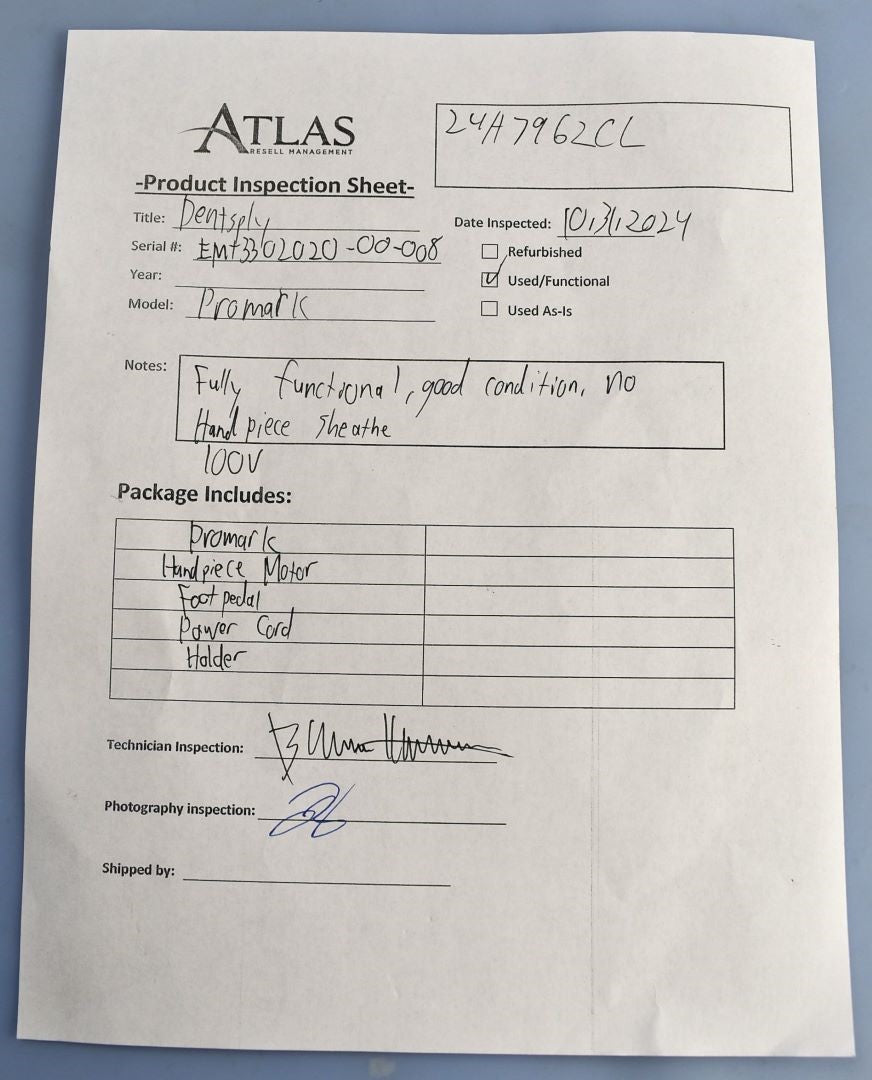 ATLAS
RESELL MANAGEMENT
24A7962CL
-Product Inspection Sheet-
Title: Dentsply
Date Inspected: 10/31/2024
Serial #: EMT3302020-00-008
Refurbished
Year:
Used/Functional
Model: Promark
Used As-Is
Notes: Fully functional, good condition, no
Handpiece sheathe
100V
Package Includes:
Promark
Handpiece Motor
Foot pedal
Power Cord
Holder
Technician Inspection:
Photography inspection:
Shipped by: